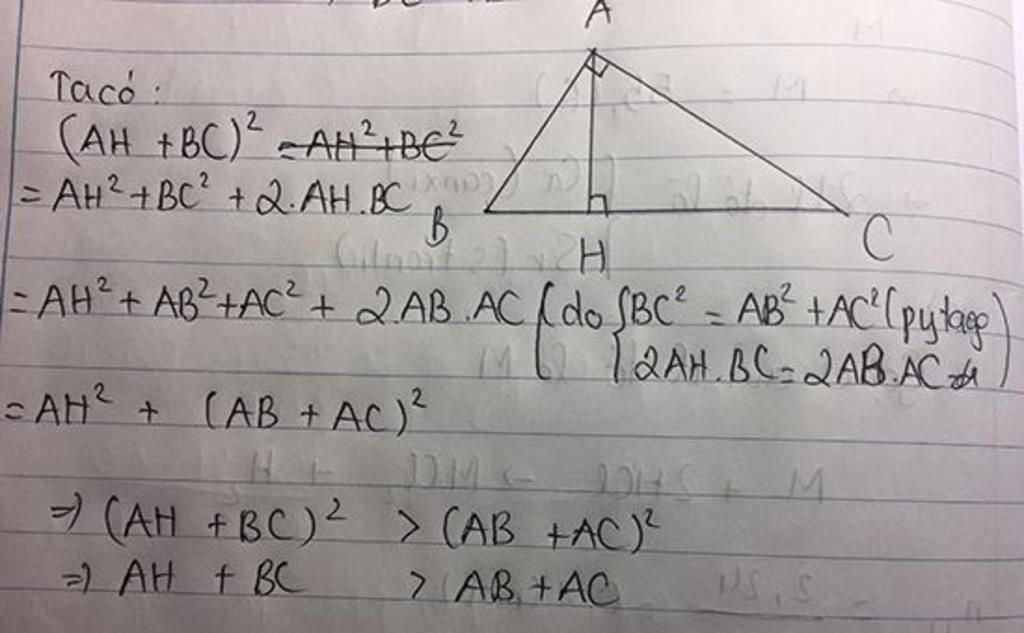 A
Ta có :
(AH + BC)² = AH² + BC²
= AH² + BC² + 2.AH.BC
B
H
C
= AH² + AB² + AC² + 2.AB.AC (do { BC² = AB² + AC² (pytago)
2AH.BC = 2AB.AC )
= AH² + (AB + AC)²
⇒ (AH + BC)² > (AB + AC)²
⇒ AH + BC > AB + AC